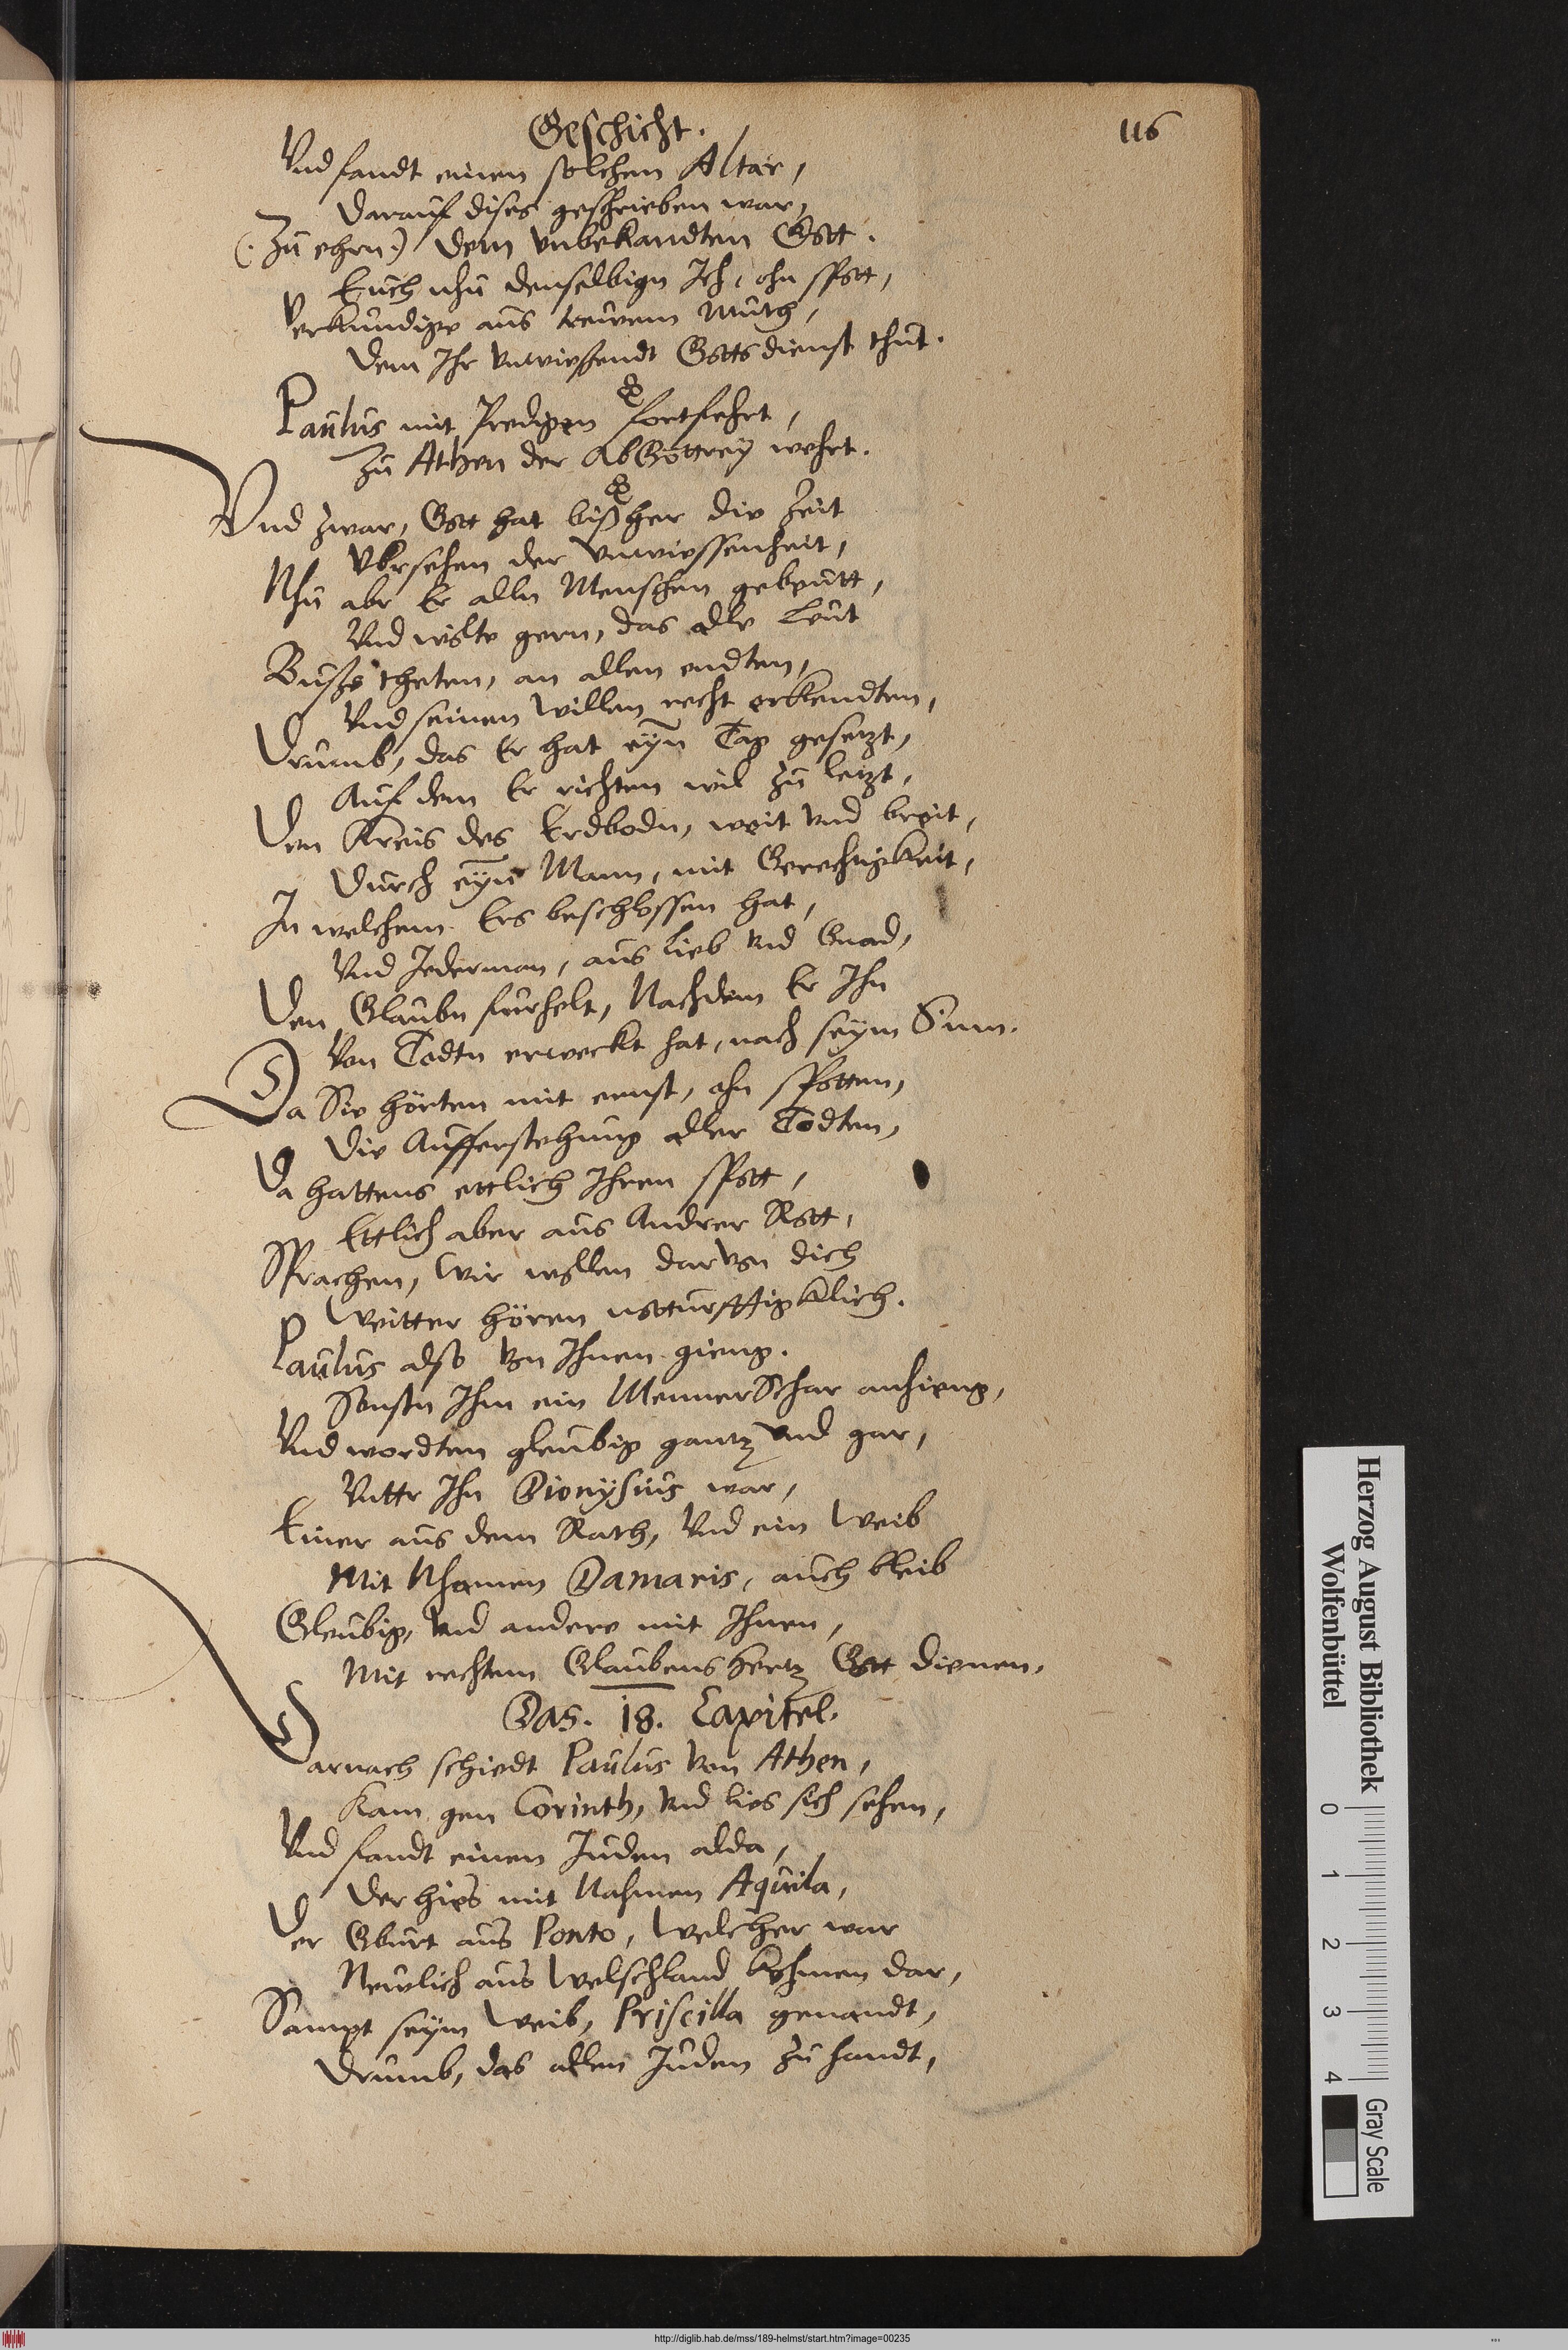 Geschicht.
116
Vnd fandt einen solchen Altar,
Darauf dises geschrieben war,
(: Zu ehrn:) dem vnbekandten Gott.
Euch nhu denselbign Ich, ohn spott,
Verkundige aus trewem Muth,
Dem Ihr vnwissendt Gottsdienst thut.
Paulus mit Predigen fortfehrt,
Zu Athen der AbGöttrey wehrt.
Vnd zwar, Gott hat bißher die Zeit
Vbrsehen der Vnwissenheit,
Nhu abr Er alln Menschen gebeutt,
Vnd wolte gern, das alle Leut
Busse theten, an allen endten,
Vnd seinen Willen recht erkendten,
Drumb, das Er hat eyn Tag gesetzt,
Auf dem Er richten wil zu letzt,
Den Kreis des Erdbodn, weit vnd breit,
Durch eyn Mann, mit Gerechtigkeit,
In welchem Ers beschlossen hat,
Vnd Jederman, aus Lieb vnd Gnad,
Den Glaubn furhelt, Nachdem Er Ihn
Von Todtn erweckt hat, nach seym Sinn.
Da Sie hörten mit ernst, ohn spotten,
Die Aufferstehung aller Todten,
Da hattens ettlich Ihren spott,
Ettlich aber aus Andrer Rott,
Sprachen, Wir wollen darvon dich
Weitter hören notturfftigklich.
Paulus also von Ihnen gieng.
Sonstn Ihm ein MennerSchar anhieng,
Vnd wordten gleubig gantz vnd gar,
Vnttr Ihn Dionysius war,
Einer aus dem Rath, Vnd ein Weib
Mit Nhamen Damaris, auch bleib
Gleubig, vnd andere mit Ihnen,
Mit rechtem Glaubens hertz Gott dienen.
Das. 18. Capitel.
Darnach schiedt Paulus von Athen,
Kam gen Corinth, vnd lies sich sehen,
Vnd fandt einen Juden alda,
Der hies mit Nahmen Aquila,
Der Gburt aus Ponto, Welcher war
Newlich aus Welschland kohmen dar,
Sampt seym Weib, Priscilla genandt,
Drumb, das allen Juden zu handt,
Herzog August Bibliothek
Wolfenbüttel
0 1 2 3 4
Gray Scale
http://diglib.hab.de/mss/189-helmst/start.htm?image=00235